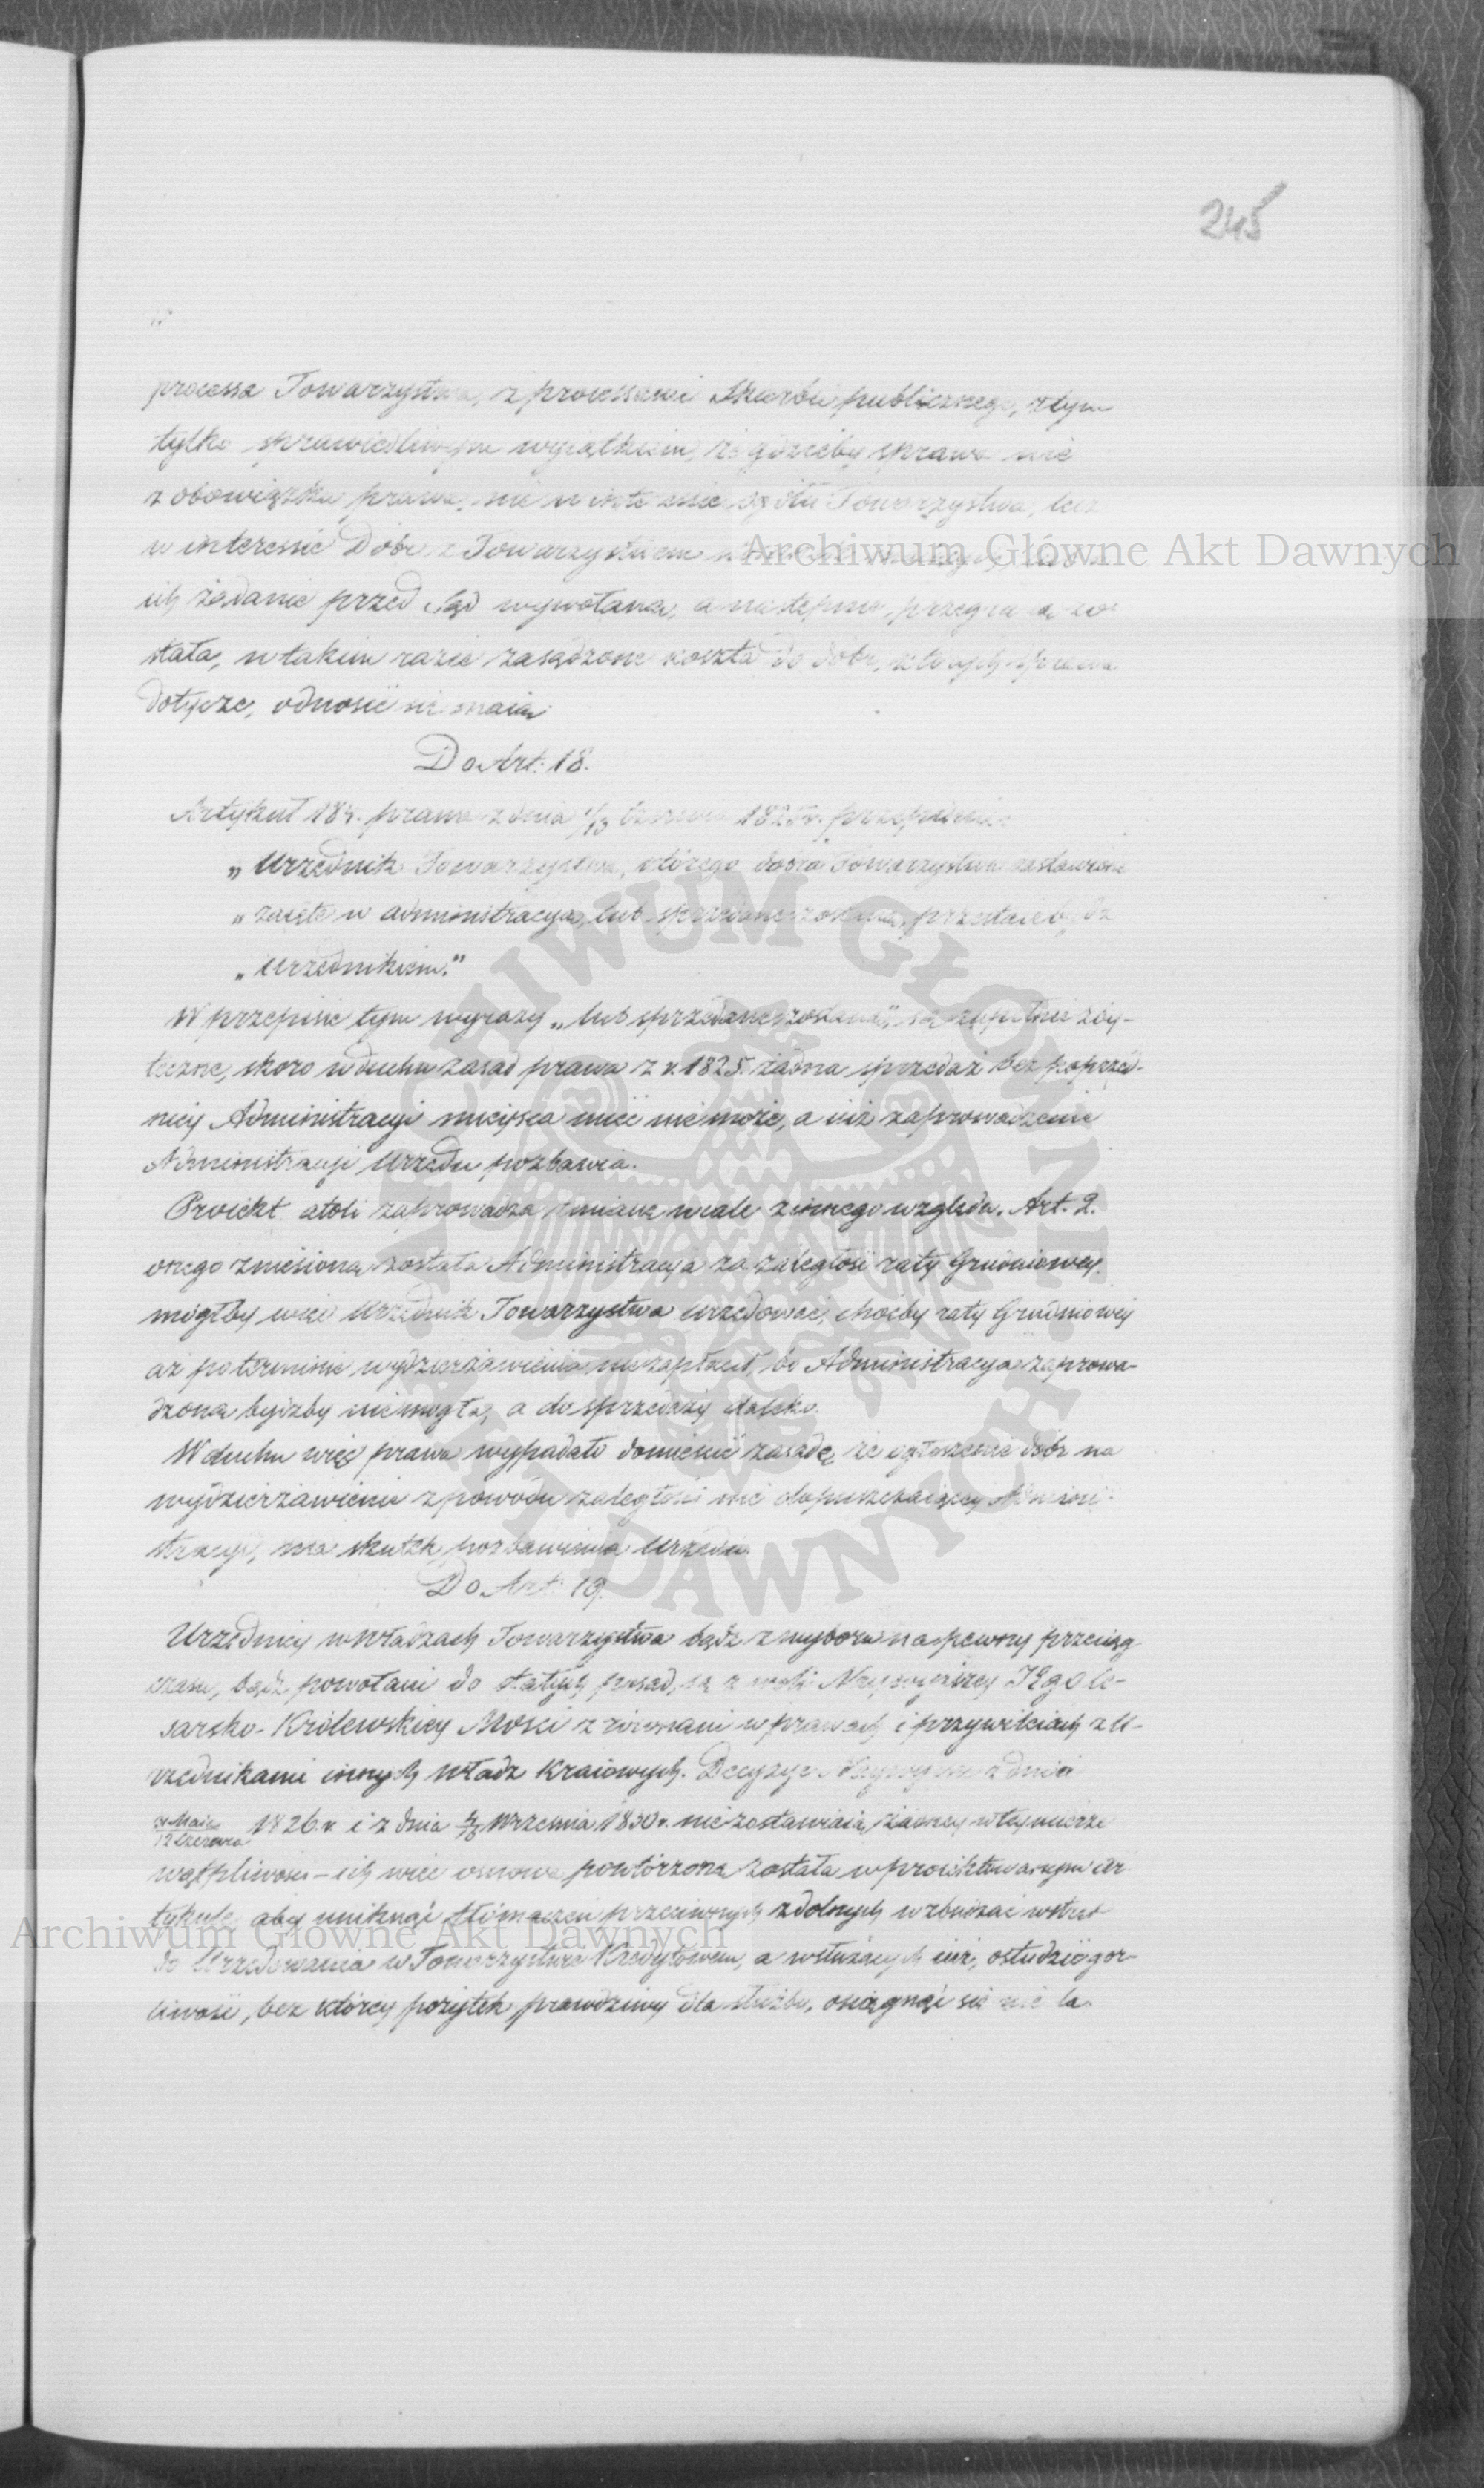 245
processa Towarzystwa, z processami Skarbu publicznego, z tym
tylko sprawiedliwym wyiątkiem, że gdzieby sprawa nie
z obowiązku prawa, nie w interesie ogółu Towarzystwa, lecz
w interessie Dóbr z Towarzystwem
ich żądanie przed Sąd wywołana, a następnie przegrana zo-
stała, w takim razie zasądzone koszta do dóbr, których sprawa
dotycze, odnosić się maią.
Do Art: 18.
Artykuł 184. prawa z dnia 1/13 Czerwca 1825 r. przepisuie:
„Urzędnik Towarzystwa, którego dobra Towarzystwu zastawione
„zaięte w administracyą, lub sprzedane zostaną, przestaie bydź
„Urzędnikiem."
W przepisie tym wyrazy „lub sprzedane zostaną", są zupełnie zby-
teczne, skoro w duchu zasad prawa z r. 1825. żadna sprzedaż bez poprzed-
niey Administracyi mieysca mieć nie może, a iuż zaprowadzenie
Administracyi Urzędu pozbawia.
Proiekt atoli zaprowadza zmianę wcale z innego względu. Art. 2.
onego zniesiona została Administracya za zaległość raty Grudniowey.
mógłby więc Urzędnik Towarzystwa urzędować, choćby raty Grudniowey
aż po terminie wydzierżawienia nie zapłacił, bo Administracya zaprowa-
dzoną bydźby nie mogła, a do sprzedaży daleko.
W duchu więc prawa wypadało domieścić zasadę, że ogłoszenie dóbr na
wydzierżawienie z powodu zaległości nie dopuszczaiącey Admini-
stracyi, ma skutek pozbawienia Urzędu.
Do Art: 19.
Urzędnicy w Władzach Towarzystwa bądź z wyboru na pewny przeciąg
czasu, bądź powołani do stałych posad, są z woli Naywyższey JEgo Ce-
sarsko-Królewskiey Mości zrównani w prawach i przywileiach z U-
rzędnikami innych Władz Kraiowych. Decyzye Naywyższe z dnia
31 Maia / 12 Czerwca 1826 r. i z dnia 4/16 Września 1830 r. nie zostawiaią żadney w tey mierze
wątpliwości – ich więc osnowa powtórzona została w proiektowanym ar-
tykule, aby uniknąć tłómaczeń przeciwnych zdolnych wzbudzać wstręt
do Urzędowania w Towarzystwie Kredytowem, a w służących iuż, ostudzić gor-
liwość, bez którey pożytek prawdziwy dla służby, osiągnąć się nie da.
Archiwum Główne Akt Dawnych
Archiwum Główne Akt Dawnych
ARCHIWUM GŁÓWNE AKT DAWNYCH